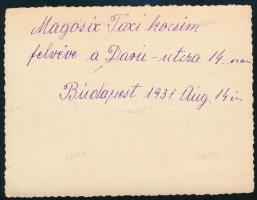 Magosix Taxi kocsim
felvéve a Darú-útcza 14.
Búdapest 1931. Aug. 14 én